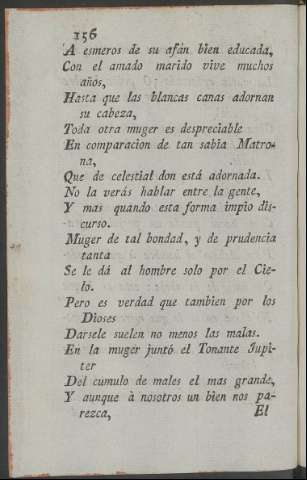 156
A esmeros de su afán bien educada,
Con el amado marido vive muchos
años,
Hasta que las blancas canas adornan
su cabeza,
Toda otra muger es despreciable
En comparacion de tan sabia Matro-
na,
Que de celestial don está adornada.
No la verás hablar entre la gente,
Y mas quando esta forma impio dis-
curso.
Muger de tal bondad, y de prudencia
tanta
Se le dá al hombre solo por el Cie-
lo.
Pero es verdad que tambien por los
Dioses
Darsele suelen no menos las malas.
En la muger juntó el Tonante Jupi-
ter
Del cumulo de males el mas grande,
Y aunque à nosotros un bien nos pa-
rezca,
El